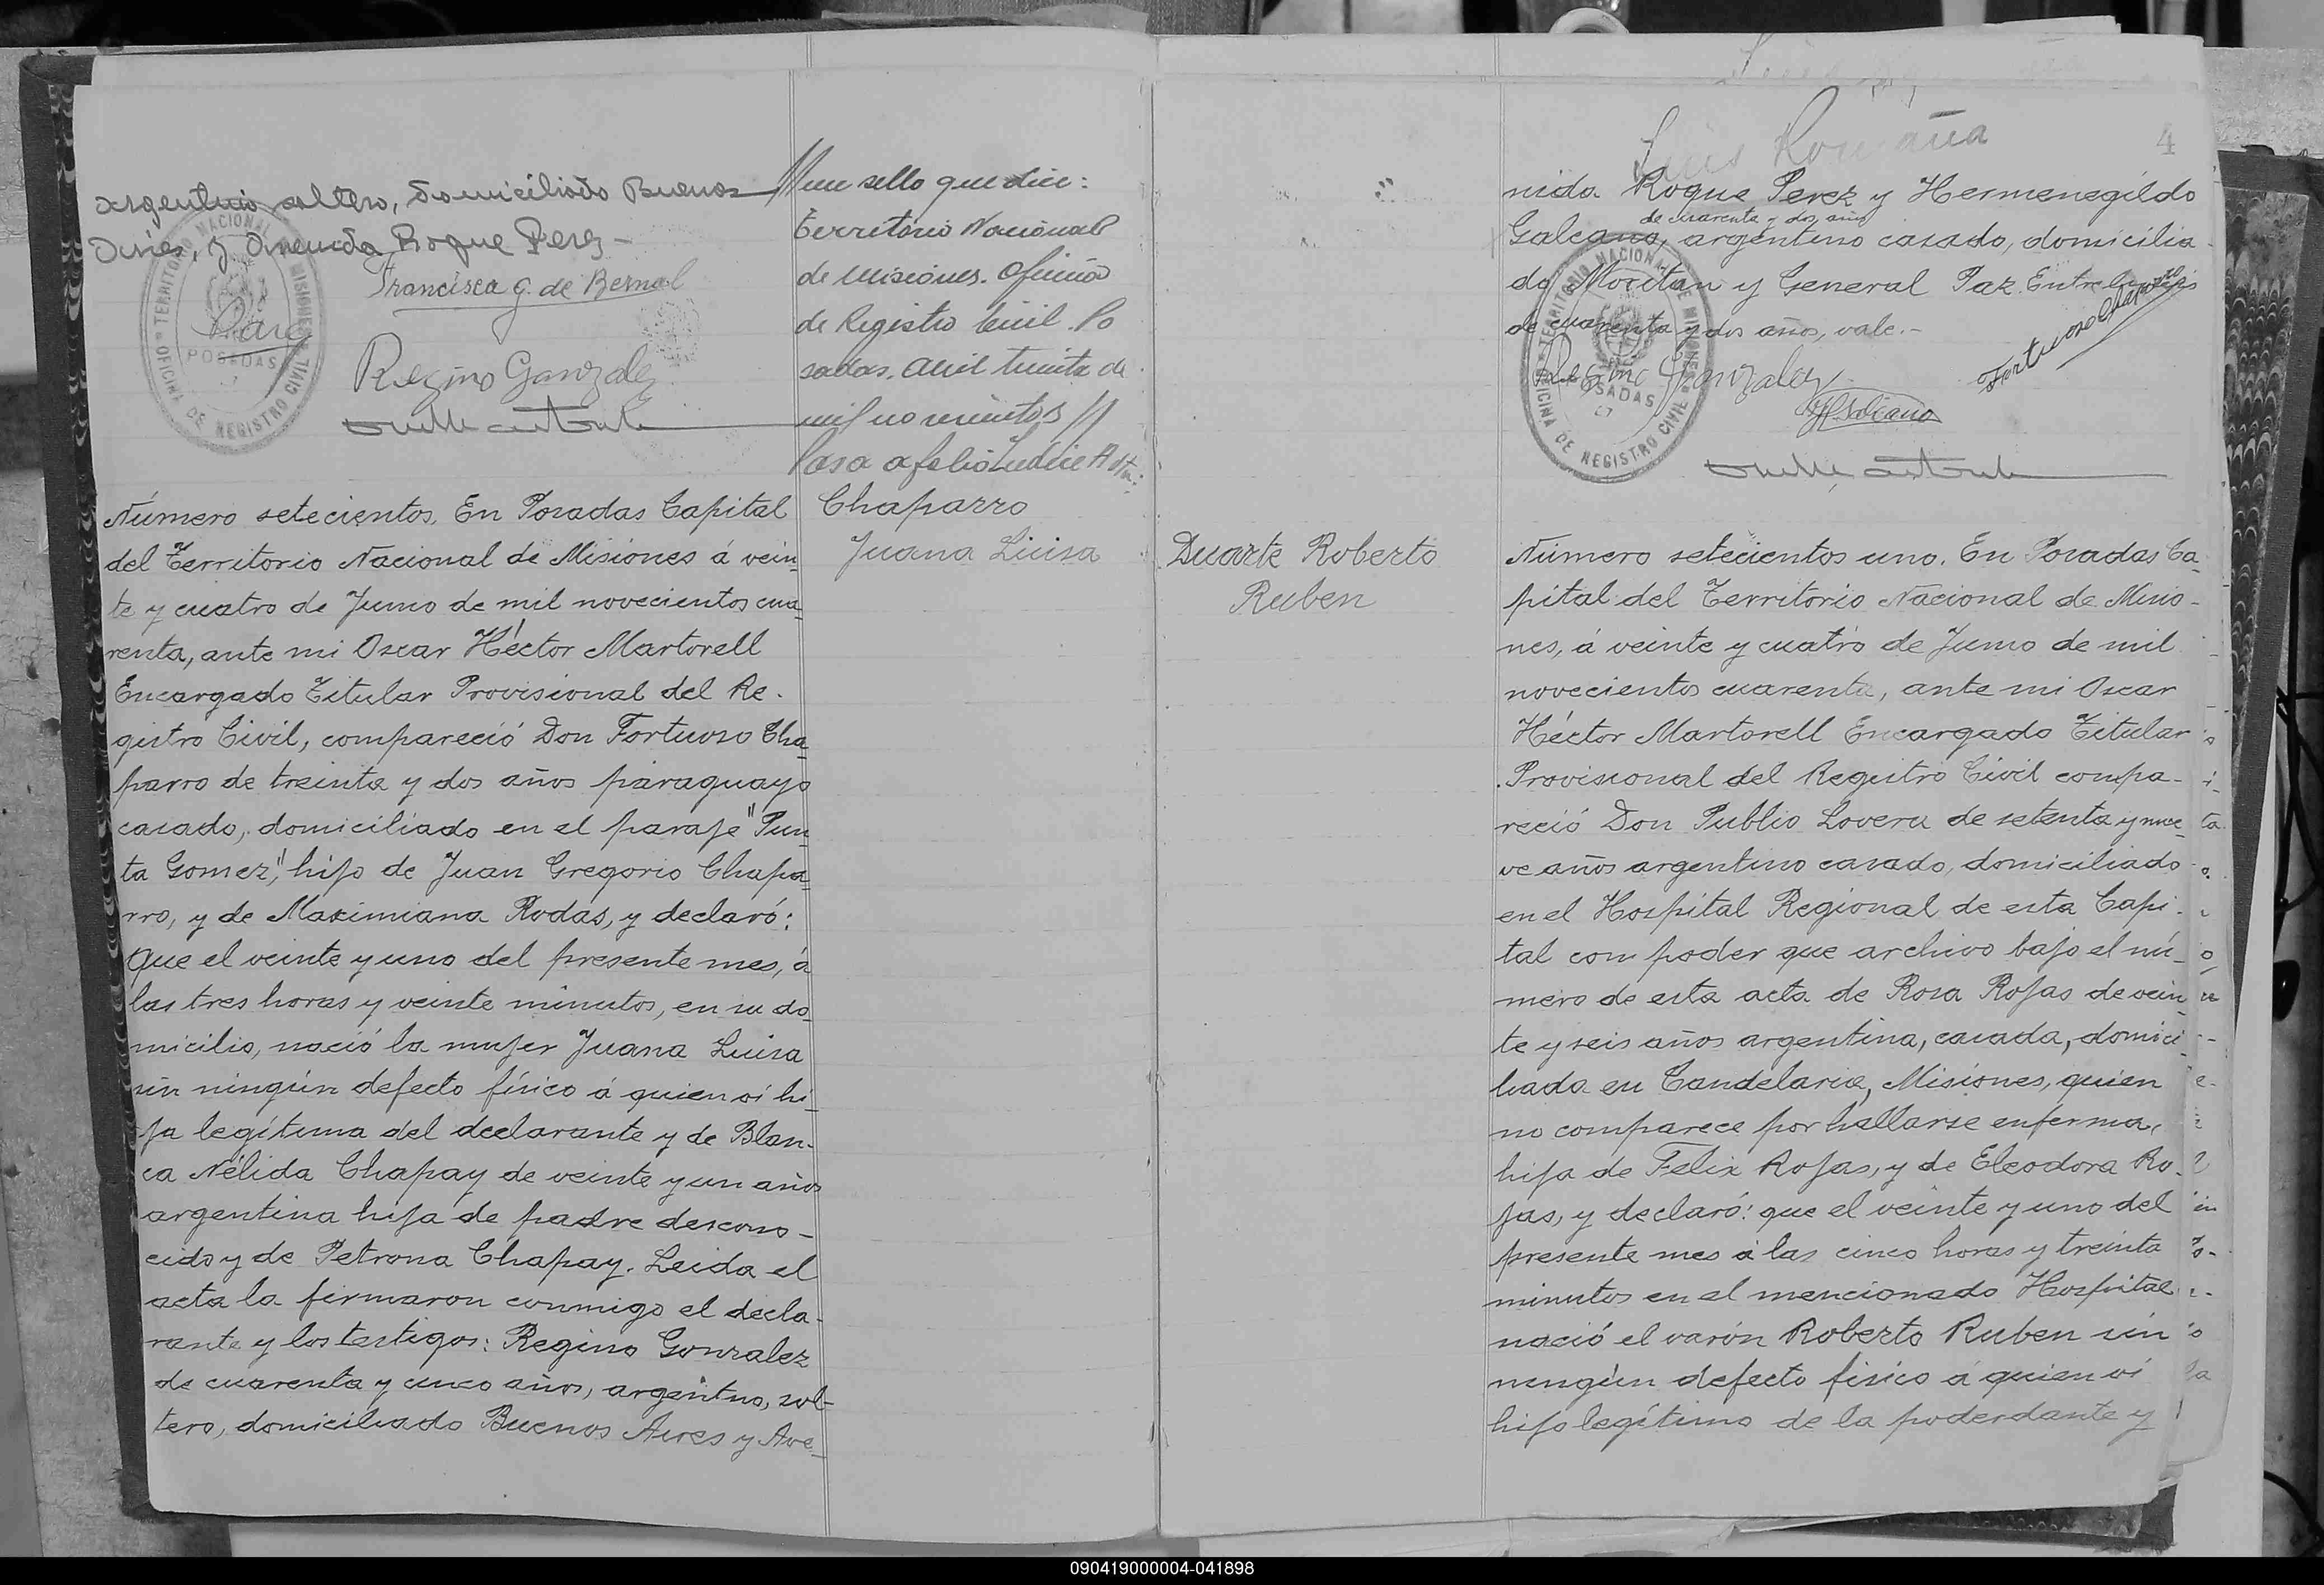 argentino soltero, domiciliado Buenos
Aires, y Avenida Roque Perez -
Francisca G. de Bernal
TERRITORIO NACIONAL DE MISIONES
POSADAS
OFICINA DE REGISTRO CIVIL
Regino Gonzalez
un sello que dice:
Territorio Nacional
de Misiones. Oficina
de Registro Civil. Po
sadas. Abril treinta de
mil novecientos
Pasa a folio Indice
Número setecientos. En Posadas Capital
del Territorio Nacional de Misiones á vein
te y cuatro de Junio de mil novecientos cua
renta, ante mi Oscar Héctor Martorell
Encargado Titular Provisional del Re-
gistro Civil, compareció Don Fortuoso Cha
parro de treinta y dos años paraguayo
casado, domiciliado en el paraje "Pun
ta Gomez", hijo de Juan Gregorio Chapa
rro, y de Maximiana Rodas, y declaró:
Que el veinte y uno del presente mes, á
las tres horas y veinte minutos, en su do
micilio, nació la mujer Juana Luisa
sin ningún defecto físico á quien ví hi
ja legítima del declarante y de Blan-
ca Nélida Chapay de veinte y un años
argentina hija de padre descono-
cido y de Petrona Chapay. Leida el
acta la firmaron conmigo el decla-
rante y los testigos: Regino Gonzalez
de cuarenta y cinco años, argentino, sol-
tero, domiciliado Buenos Aires y Ave
Chaparro
Juana Luisa
Luis Romaña
4
nida Roque Perez y Hermenegildo
de cuarenta y dos años
Galeano, argentino casado, domicilia-
do Moritan y General Paz. Entre lineas
de cuarenta y dos años, vale.-
TERRITORIO NACIONAL DE MISIONES
POSADAS
OFICINA DE REGISTRO CIVIL
Regino Gonzalez
Fortuoso Chaparro
Duarte Roberto
Ruben
Número setecientos uno. En Posadas Ca
pital del Territorio Nacional de Misio-
nes, á veinte y cuatro de Junio de mil
novecientos cuarenta, ante mi Oscar
Héctor Martorell Encargado Titular
Provisional del Registro Civil compa-
reció Don Publio Lovera de setenta y nue
ve años argentino casado, domiciliado
en el Hospital Regional de esta Capi-
tal con poder que archivo bajo el nú-
mero de esta acta de Rosa Rojas de vein
te y seis años argentina, casada, domici
liada en Candelaria, Misiones, quien
no comparece por hallarse enferma,
hija de Felix Rojas, y de Eleodora Ro-
jas, y declaró: que el veinte y uno del
presente mes á las cinco horas y treinta
minutos en el mencionado Hospital
nació el varón Roberto Ruben sin
ningún defecto físico á quien ví
hijo legítimo de la poderdante y
090419000004-041898